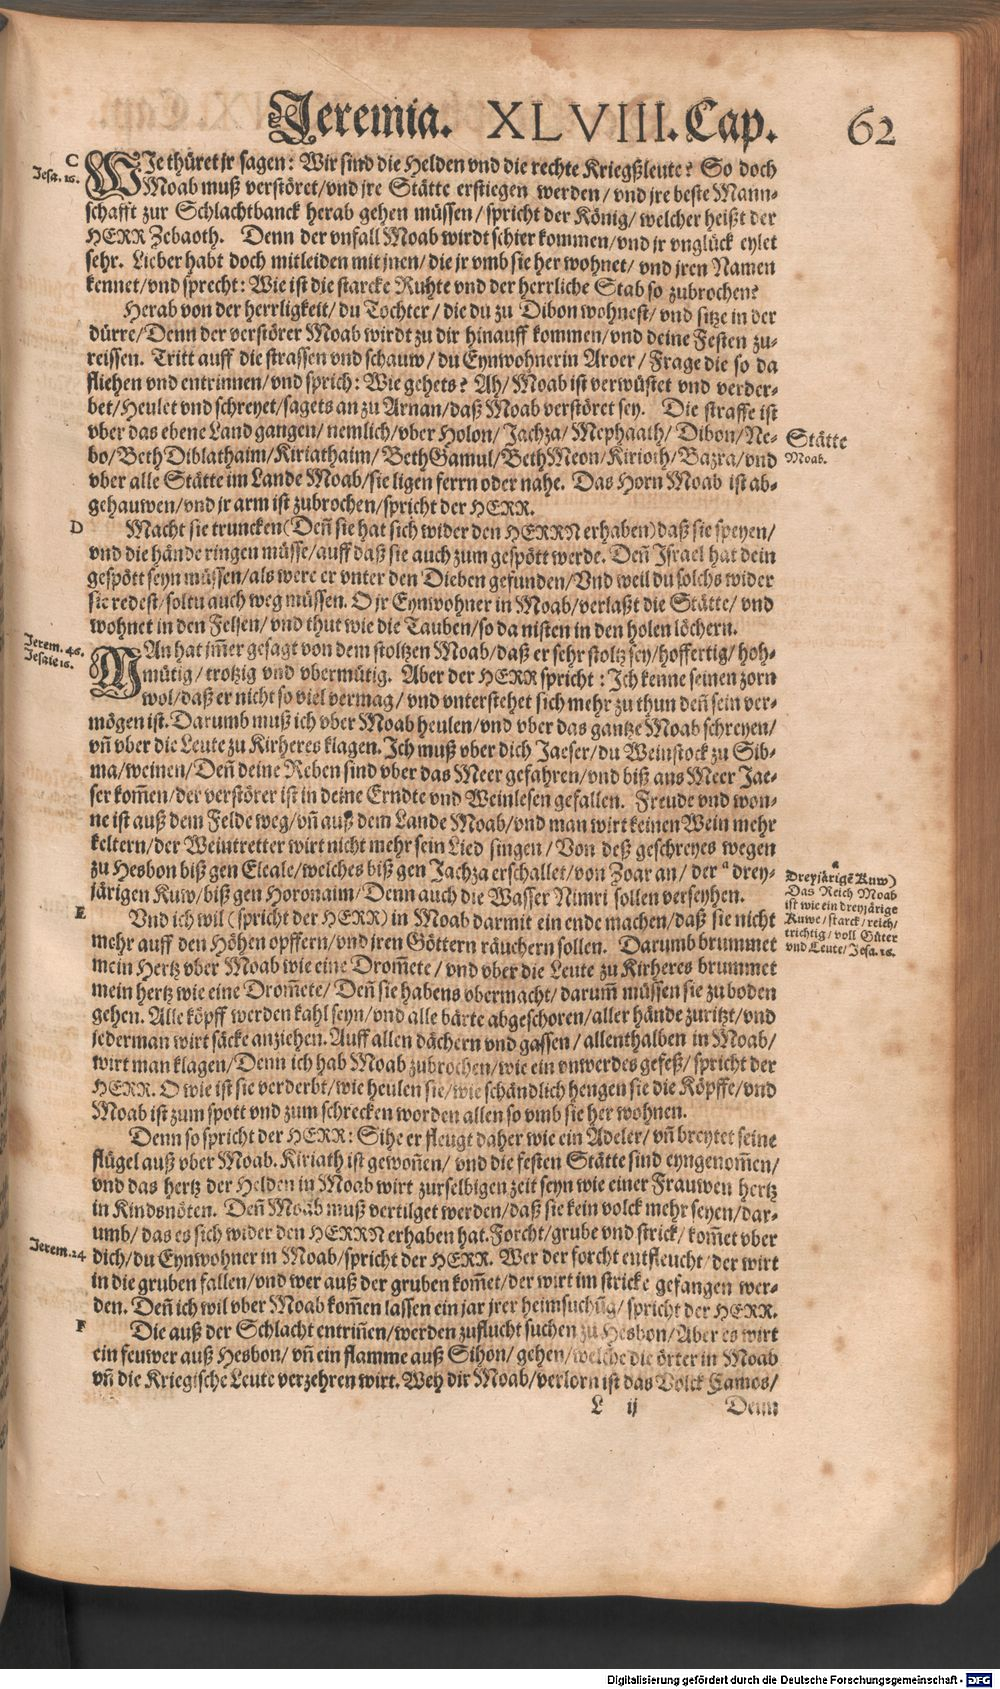 Jeremia. XLVIII. Cap. 62
C
Jesa. 16.
WJe thüret jr sagen: Wir sind die Helden vnd die rechte Kriegßleute? So doch
Moab muß verstöret/vnd jre Stätte erstiegen werden/vnd jre beste Mann-
schafft zur Schlachtbanck herab gehen müssen/spricht der König/welcher heißt der
HERR Zebaoth. Denn der vnfall Moab wirdt schier kommen/vnd jr vnglück eylet
sehr. Lieber habt doch mitleiden mit jnen/die jr vmb sie her wohnet/vnd jren Namen
kennet/vnd sprecht: Wie ist die starcke Ruhte vnd der herrliche Stab so zubrochen?
Herab von der herrligkeit/du Tochter/die du zu Dibon wohnest/vnd sitze in der
dürre/Denn der verstörer Moab wirdt zu dir hinauff kommen/vnd deine Festen zu-
reissen. Tritt auff die strassen vnd schauw/du Eynwohnerin Aroer/Frage die so da
fliehen vnd entrinnen/vnd sprich: Wie gehets? Ah/Moab ist verwüstet vnd verder-
bet/Heulet vnd schreyet/sagets an zu Arnan/daß Moab verstöret sey. Die straffe ist
vber das ebene Land gangen/nemlich/vber Holon/Jachza/Mephaath/Dibon/Ne-
bo/BethDiblathaim/Kiriathaim/BethGamul/BethMeon/Kirioth/Bazra/vnd
vber alle Stätte im Lande Moab/sie ligen ferrn oder nahe. Das Horn Moab ist ab-
gehauwen/vnd jr arm ist zubrochen/spricht der HERR.
Stätte
Moab.
D
Macht sie truncken(Deñ sie hat sich wider den HERRN erhaben)daß sie speyen/
vnd die hände ringen müsse/auff daß sie auch zum gespött werde. Deñ Jsrael hat dein
gespött seyn müssen/als were er vnter den Dieben gefunden/Vnd weil du solchs wider
sie redest/soltu auch weg müssen. O jr Eynwohner in Moab/verlaßt die Stätte/vnd
wohnet in den Felsen/vnd thut wie die Tauben/so da nisten in den holen löchern.
Jerem. 46.
Jesaie 16.
MAn hat jm̃er gesagt von dem stoltzen Moab/daß er sehr stoltz sey/hoffertig/hoh-
mütig/trotzig vnd vbermütig. Aber der HERR spricht: Ich kenne seinen zorn
wol/daß er nicht so viel vermag/vnd vnterstehet sich mehr zu thun deñ sein ver-
mögen ist. Darumb muß ich vber Moab heulen/vnd vber das gantze Moab schreyen/
vñ vber die Leute zu Kirheres klagen. Ich muß vber dich Jaeser/du Weinstock zu Sib-
ma/weinen/Deñ deine Reben sind vber das Meer gefahren/vnd biß ans Meer Jae-
ser kom̃en/der verstörer ist in deine Erndte vnd Weinlesen gefallen. Freude vnd won-
ne ist auß dem Felde weg/vñ auß dem Lande Moab/vnd man wirt keinen Wein mehr
keltern/der Weintretter wirt nicht mehr sein Lied singen/Von deß geschreyes wegen
zu Hesbon biß gen Eleale/welches biß gen Jachza erschallet/von Zoar an/der ᵃ drey-
järigen Kuw/biß gen Horonaim/Denn auch die Wasser Nimri sollen verseyhen.
a
Dreyjärigẽ Kuw)
Das Reich Moab
ist wie ein dreyjärige
Kuwe/starck/reich/
trichtig/voll Güter
vnd Leute/Jesa. 16.
E
Vnd ich wil (spricht der HERR) in Moab darmit ein ende machen/daß sie nicht
mehr auff den Höhen opffern/vnd jren Göttern räuchern sollen. Darumb brummet
mein Hertz vber Moab wie eine Drom̃ete/vnd vber die Leute zu Kirheres brummet
mein hertz wie eine Drom̃ete/Deñ sie habens obermacht/darum̃ müssen sie zu boden
gehen. Alle köpff werden kahl seyn/vnd alle bärte abgeschoren/aller hände zuritzt/vnd
jederman wirt säcke anziehen. Auff allen dächern vnd gassen/allenthalben in Moab/
wirt man klagen/Denn ich hab Moab zubrochen/wie ein vnwerdes gefeß/spricht der
HERR. O wie ist sie verderbt/wie heulen sie/wie schändlich hengen sie die Köpffe/vnd
Moab ist zum spott vnd zum schrecken worden allen so vmb sie her wohnen.
Denn so spricht der HERR: Sihe er fleugt daher wie ein Adeler/vñ breytet seine
flügel auß vber Moab. Kiriath ist gewoñen/vnd die festen Stätte sind eyngenom̃en/
vnd das hertz der Helden in Moab wirt zurselbigen zeit seyn wie einer Frauwen hertz
in Kindsnöten. Deñ Moab muß vertilget werden/daß sie kein volck mehr seyen/dar-
umb/das es sich wider den HERRN erhaben hat. Forcht/grube vnd strick/kom̃et vber
Jerem. 24
dich/du Eynwohner in Moab/spricht der HERR. Wer der forcht entfleucht/der wirt
in die gruben fallen/vnd wer auß der gruben kom̃et/der wirt im stricke gefangen wer-
den. Deñ ich wil vber Moab kom̃en lassen ein jar jrer heimsuchũg/spricht der HERR.
F
Die auß der Schlacht entriñen/werden zuflucht suchen zu Hesbon/Aber es wirt
ein feuwer auß Hesbon/vñ ein flamme auß Sihon/gehen/welche die örter in Moab
vñ die Kriegische Leute verzehren wirt. Weh dir Moab/verlorn ist das Volck Camos/
L ij Denn
Digitalisierung gefördert durch die Deutsche Forschungsgemeinschaft - DFG